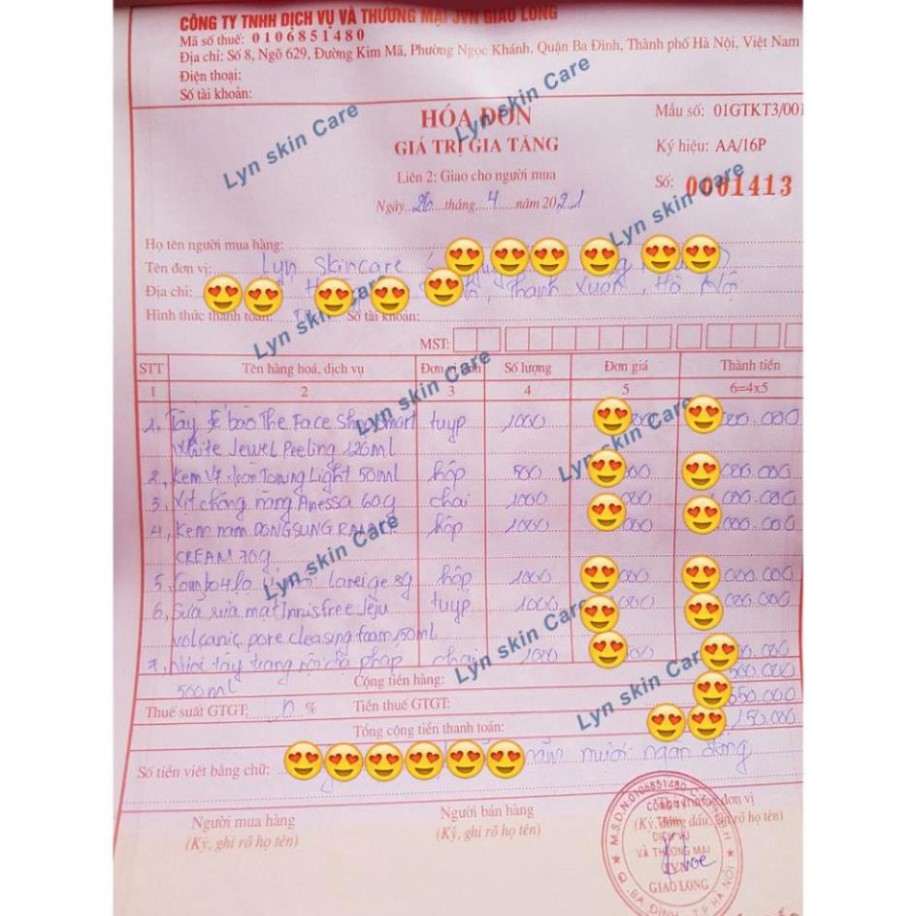 CÔNG TY TNHH DỊCH VỤ VÀ THƯƠNG MẠI JVN GIAO LONG
Mã số thuế: 0106851480
Địa chỉ: Số 8, Ngõ 629, Đường Kim Mã, Phường Ngọc Khánh, Quận Ba Đình, Thành phố Hà Nội, Việt Nam
Điện thoại:
Số tài khoản:
HÓA ĐƠN
GIÁ TRỊ GIA TĂNG
Liên 2: Giao cho người mua
Ngày 26 tháng 4 năm 2021
Mẫu số: 01GTKT3/001
Ký hiệu: AA/16P
Số: 0001413
Lyn skin Care
Lyn skin Care
Lyn skin Care
Họ tên người mua hàng:
Tên đơn vị: Lyn Skincare
Địa chỉ: Thanh Xuân, Hà Nội
Hình thức thanh toán: Số tài khoản:
Lyn skin Care
MST:
STT Tên hàng hoá, dịch vụ Đơn vị tính Số lượng Đơn giá Thành tiền
1 2 3 4 5 6=4x5
Lyn skin Care
Lyn skin Care
1. Tẩy tế bào The Face Shop Smart tuýp 1000 000.000
White Jewel Peeling 120ml
2, Kem Toning Light 50ml hộp 500 000 000.000
3, Xịt chống nắng Anessa 60g chai 1000 000 000.000
4, Kem nám DONGSUNG hộp 1000 000 000.000
CREAM 70g
Lyn skin Care
5, Combo 4 lọ Laneige 8g hộp 1000 000 000.000
6, Sữa rửa mặt Innisfree Jeju tuýp 1000 000 000.000
volcanic pore cleasing foam 150ml
Lyn skin Care
7, Nước tẩy trang nội địa pháp chai 1000 000
500ml
Cộng tiền hàng: 500.000
Thuế suất GTGT: 10 % Tiền thuế GTGT: 650.000
Lyn skin Care
Tổng cộng tiền thanh toán: 150.000
Số tiền viết bằng chữ: năm mươi ngàn đồng
Người mua hàng
(Ký, ghi rõ họ tên)
Người bán hàng
(Ký, ghi rõ họ tên)
Thủ trưởng đơn vị
(Ký, đóng dấu, ghi rõ họ tên)
M.S.D.N:0106851480
CÔNG TY
TNHH
DỊCH VỤ
VÀ THƯƠNG MẠI
JVN
GIAO LONG
Q. BA ĐÌNH - T.P HÀ NỘI